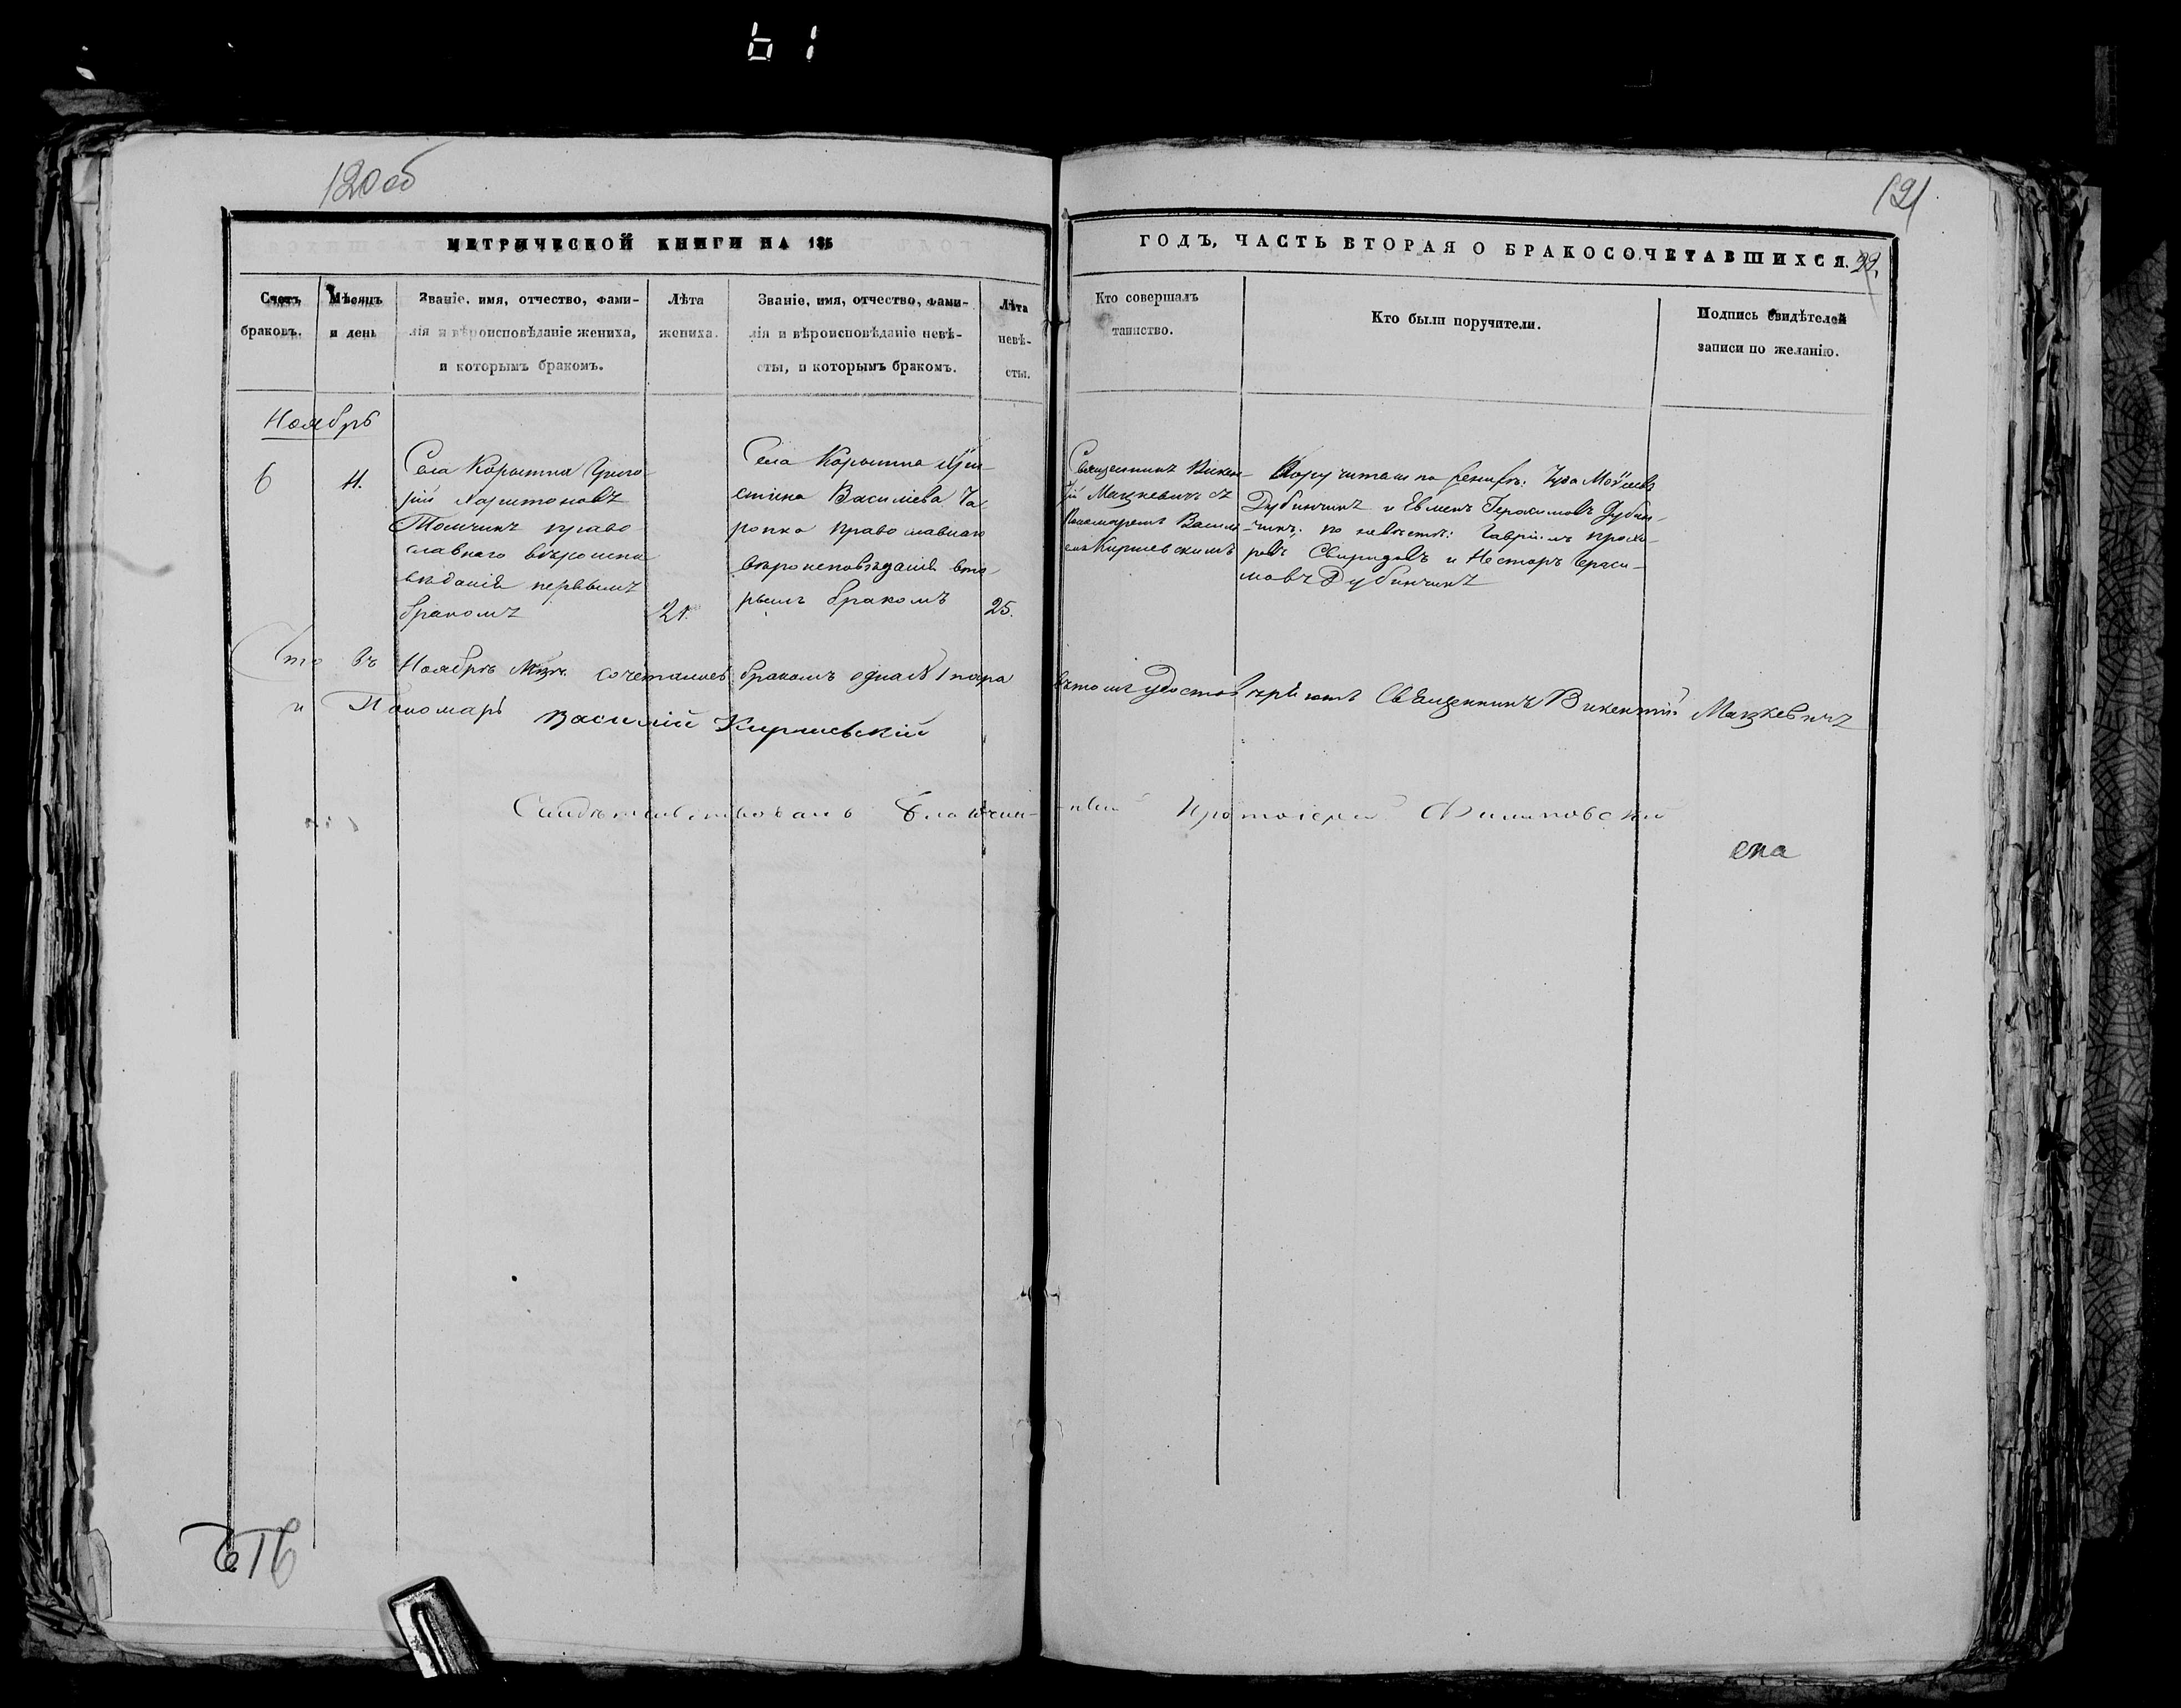 120об
МЕТРИЧЕСКОЙ КНИГИ НА 185
Счетъ браковъ.
Мѣсяцъ и день
Званіе, имя, отчество, фами-
лія и вѣроисповѣданіе жениха,
и которымъ бракомъ.
Лѣта жениха.
Званіе, имя, отчество, фами-
лія и вѣроисповѣданіе невѣ-
сты, и которымъ бракомъ.
Лѣта невѣ-
сты.
Ноябрь
6
Села Корытна Григо
рій Харитоновъ
православнаго вѣроиспо
вѣданія первымъ
бракомъ
21.
Села Корытна Хри
стина Василіева
православнаго
вѣроисповѣданія вто-
рымъ бракомъ
25.
Что въ Ноябрѣ сочеталось бракомъ одна 1 пара
и Пономарь Василій Киршевскій
Свидѣтельствовалъ Благочин-
121
ГОДЪ, ЧАСТЬ ВТОРАЯ О БРАКОСОЧЕТАВШИХСЯ.
22.
Кто совершалъ
таинство.
Кто были поручители.
Подпись свидѣтелей
записи по желанію.
Священникъ Викен-
тій Мацкевичъ съ
Пономаремъ Васили
емъ Киршевскимъ
по женихѣ:
Дубинчинъ и Евменъ Герасимовъ Дубин-
чинъ; по невѣстѣ: Гавріилъ Прохо-
ровъ Свиридовъ и Несторъ Гераси-
мовъ Дубинчинъ
въ томъ удостовѣряютъ Священникъ Викентій Мацкевичъ
ный Протоіерей Филиповскій